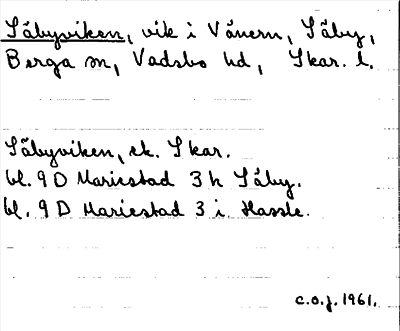 Säbyviken, vik i Vänern, Säby,
Berga sn, Vadsbo hd, Skar. l.
Säbyviken, ek. Skar.
bl. 9 D Mariestad 3 h Säby.
bl. 9 D Mariestad 3 i Hassle.
c.o.j. 1961.